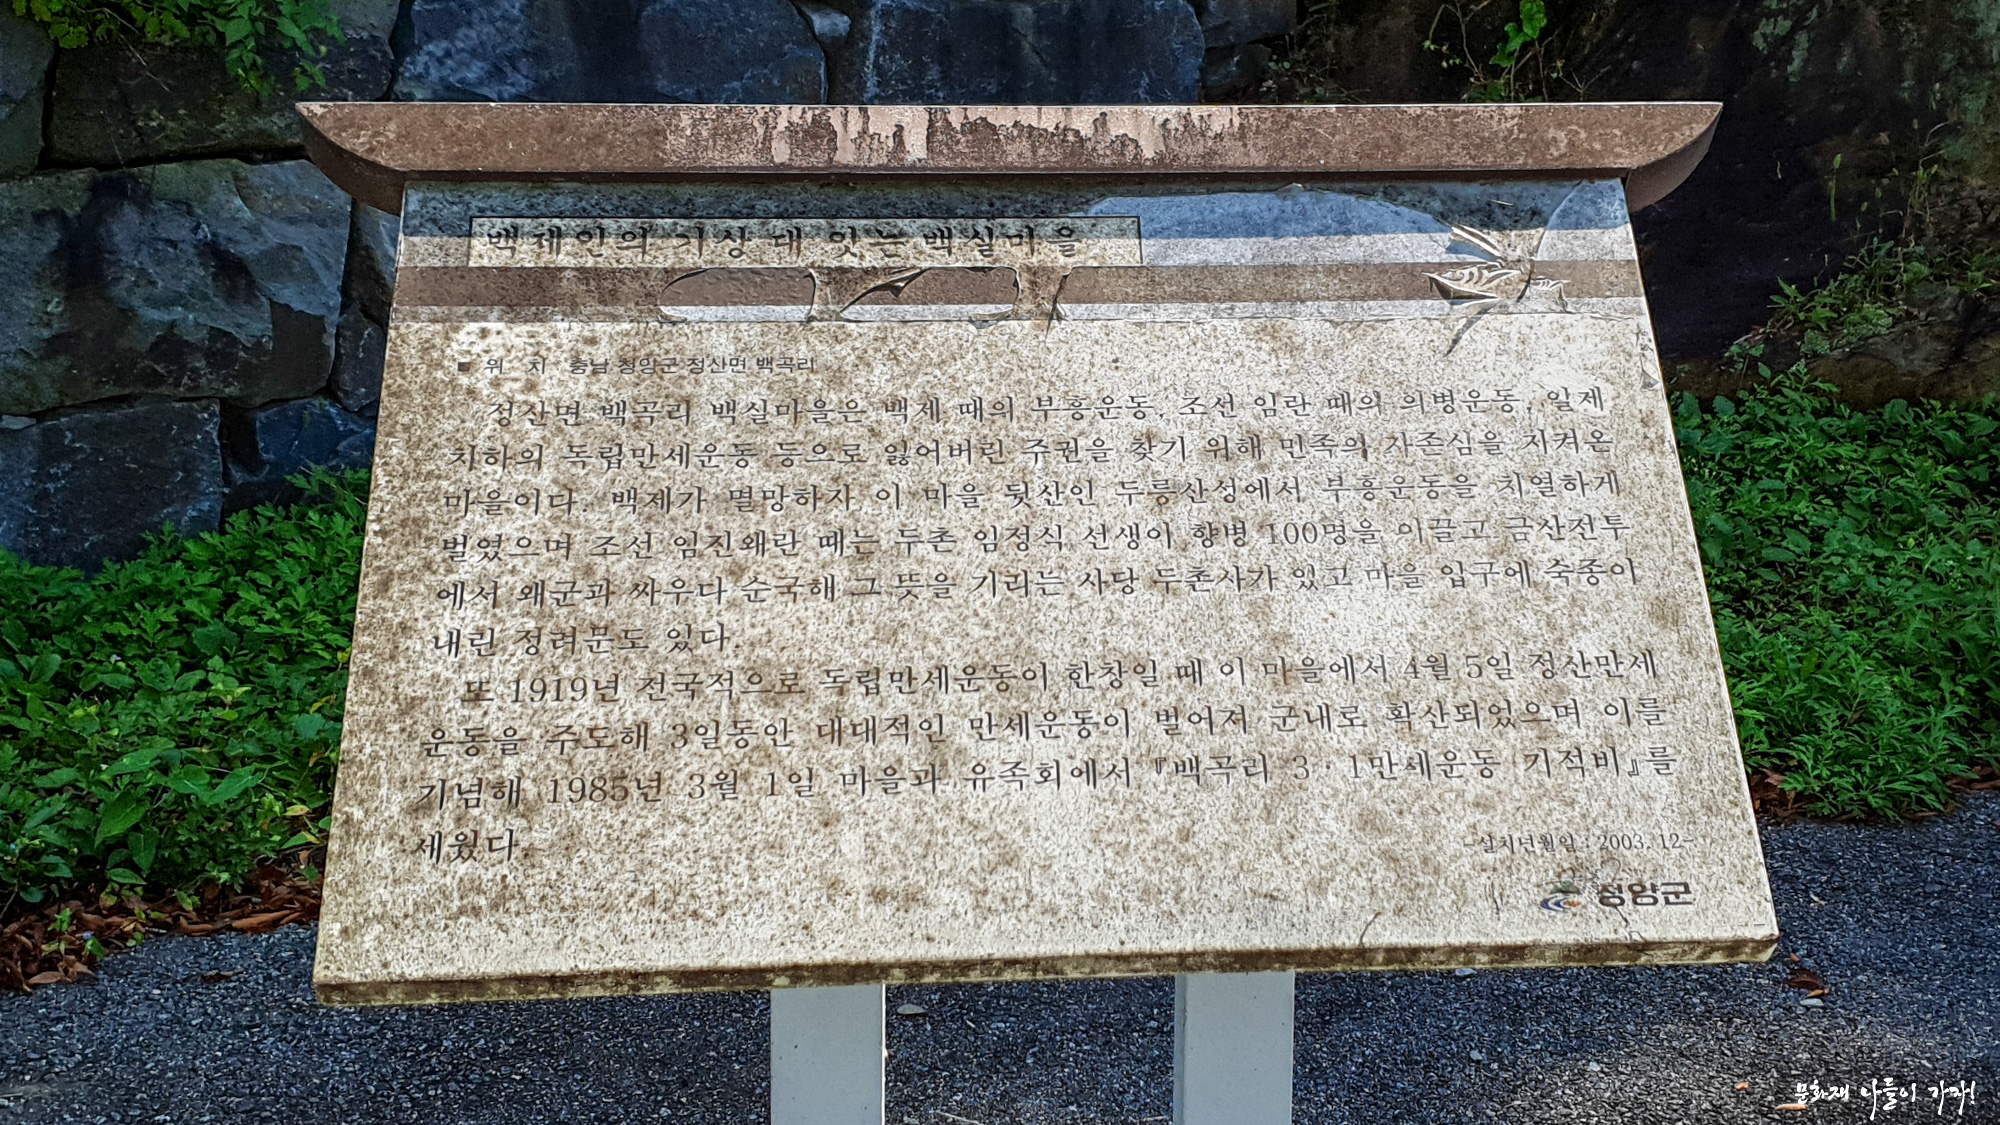 백제인의 기상 대 잇는 백실마을
■ 위 치 충남 청양군 정산면 백곡리
정산면 백곡리 백실마을은 백제 때의 부흥운동, 조선 임란 때의 의병운동, 일제
치하의 독립만세운동 등으로 잃어버린 주권을 찾기 위해 민족의 자존심을 지켜온
마을이다. 백제가 멸망하자 이 마을 뒷산인 두릉산성에서 부흥운동을 치열하게
벌였으며 조선 임진왜란 때는 두촌 임정식 선생이 향병 100명을 이끌고 금산전투
에서 왜군과 싸우다 순국해 그 뜻을 기리는 사당 두촌사가 있고 마을 입구에 숙종이
내린 정려문도 있다.
또 1919년 전국적으로 독립만세운동이 한창일 때 이 마을에서 4월 5일 정산만세
운동을 주도해 3일동안 대대적인 만세운동이 벌어져 군내로 확산되었으며 이를
기념해 1985년 3월 1일 마을과 유족회에서 『백곡리 3·1만세운동 기적비』를
세웠다.
-설치년월일 : 2003. 12-
청양군
문화재 나들이 가자!